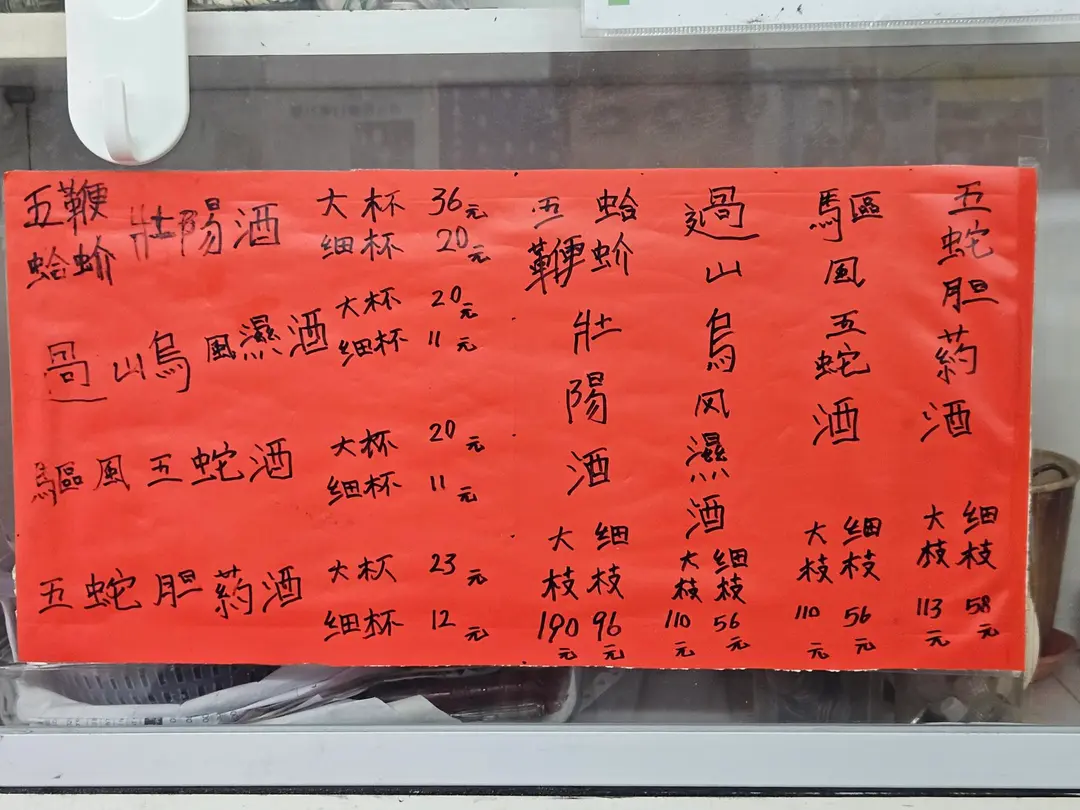 五鞭
蛤蚧 壯陽酒 大杯 36元
细杯 20元
過山烏風濕酒 大杯 20元
细杯 11元
驅風五蛇酒 大杯 20元
细杯 11元
五蛇胆药酒 大杯 23元
细杯 12元
五鞭蛤蚧壯陽酒
大枝 190元
细枝 96元
過山烏风濕酒
大枝 110元
细枝 56元
驅風五蛇酒
大枝 110元
细枝 56元
五蛇胆药酒
大枝 113元
细枝 58元